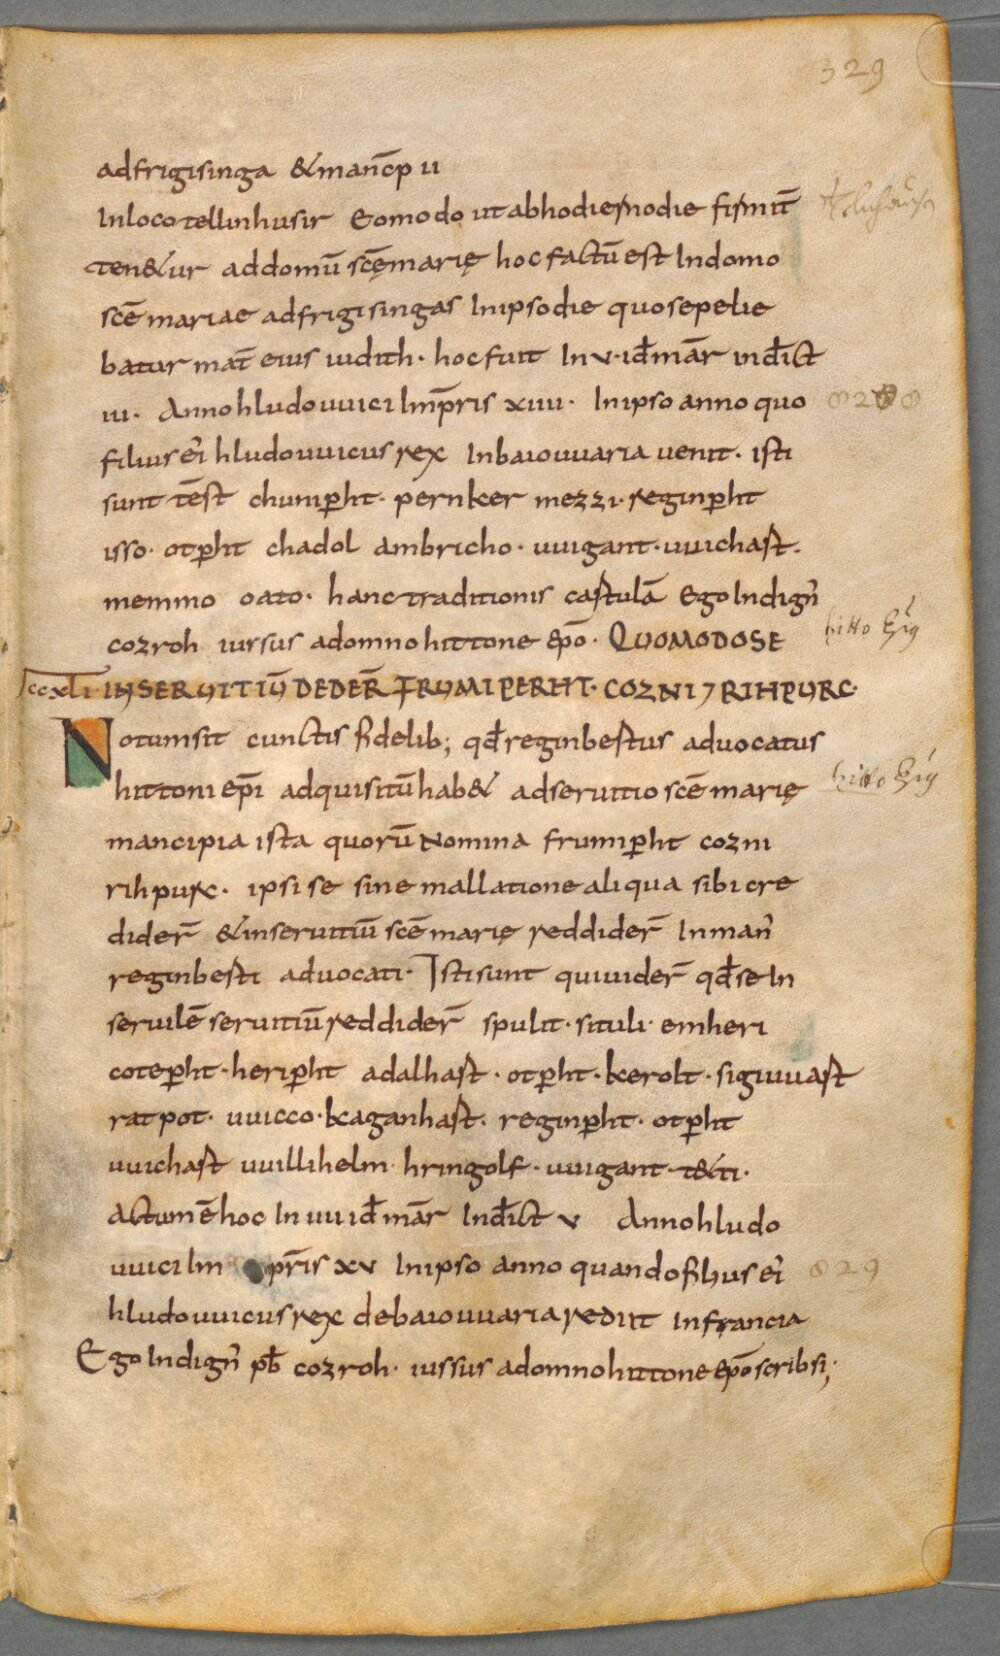 329
adfrigisinga & manc̄p ii
Inloco tellinhusir Eomodo ut abhodierno die firmit̄
ten&ur ad domū scę̄ marię hoc factū est In domo
scē mariae adfrigisingas In ipso die quo sepelie
batur mat̄ eius iudith · hoc fuit In v · id̄ mār ind̄ict
iii · Anno hludouuici Imp̄ris xiiii · In ipso anno quo
828
filius ei᾽ hludouuicus rex In baiouuaria uenit · isti
sunt tēst chunip̱ht · pernker mezzi · reginp̱ht
isso · otp̱ht chadol ambricho · uuigant · uuichast ·
memmo oato · hanc traditionis castulā Ego Indign᾽
cozroh iursus adomno hittone ep̄o · QUOMODO SE
hitto
ccxli · IN SERUITIŪ DEDER̄ FRUMIPERHT · COZNI 7 RIHPURC ·
Notum sit cunctis fidelib; qd̄ reginbestus aduocatus
hittoni ep̄i adquisitū hab& ad seruitio scē marię
hitto
mancipia ista quorū Nomina frumip̱ht cozni
rihpurc · ipsi se sine mallatione aliqua sibi cre
dider̄ & in seruitiū scē marię reddider̄ In man᾽
reginbesti aduocati · Isti sunt qui uider̄ qd̄ se In
seruilē seruitiū reddider̄ spulit · situli · emheri
cotep̱ht · herip̱ht adalhast · otp̱ht · kerolt · sigiuuast
ratpot · uuicco · kaganhast · reginp̱ht · otp̱ht
uuichast uuillihelm · hringolf · uuigant · t&ti ·
actum ē hoc In uii id̄ mār Ind̄ict v Anno hludo
uuici Im p̄ris xv In ipso anno quando filius ei᾽
829
hludouuicus rex de baiouuaria rediit in francia
Ego Indign᾽ pb̄ cozroh · iussus adomno hittone ep̄o scribsi;